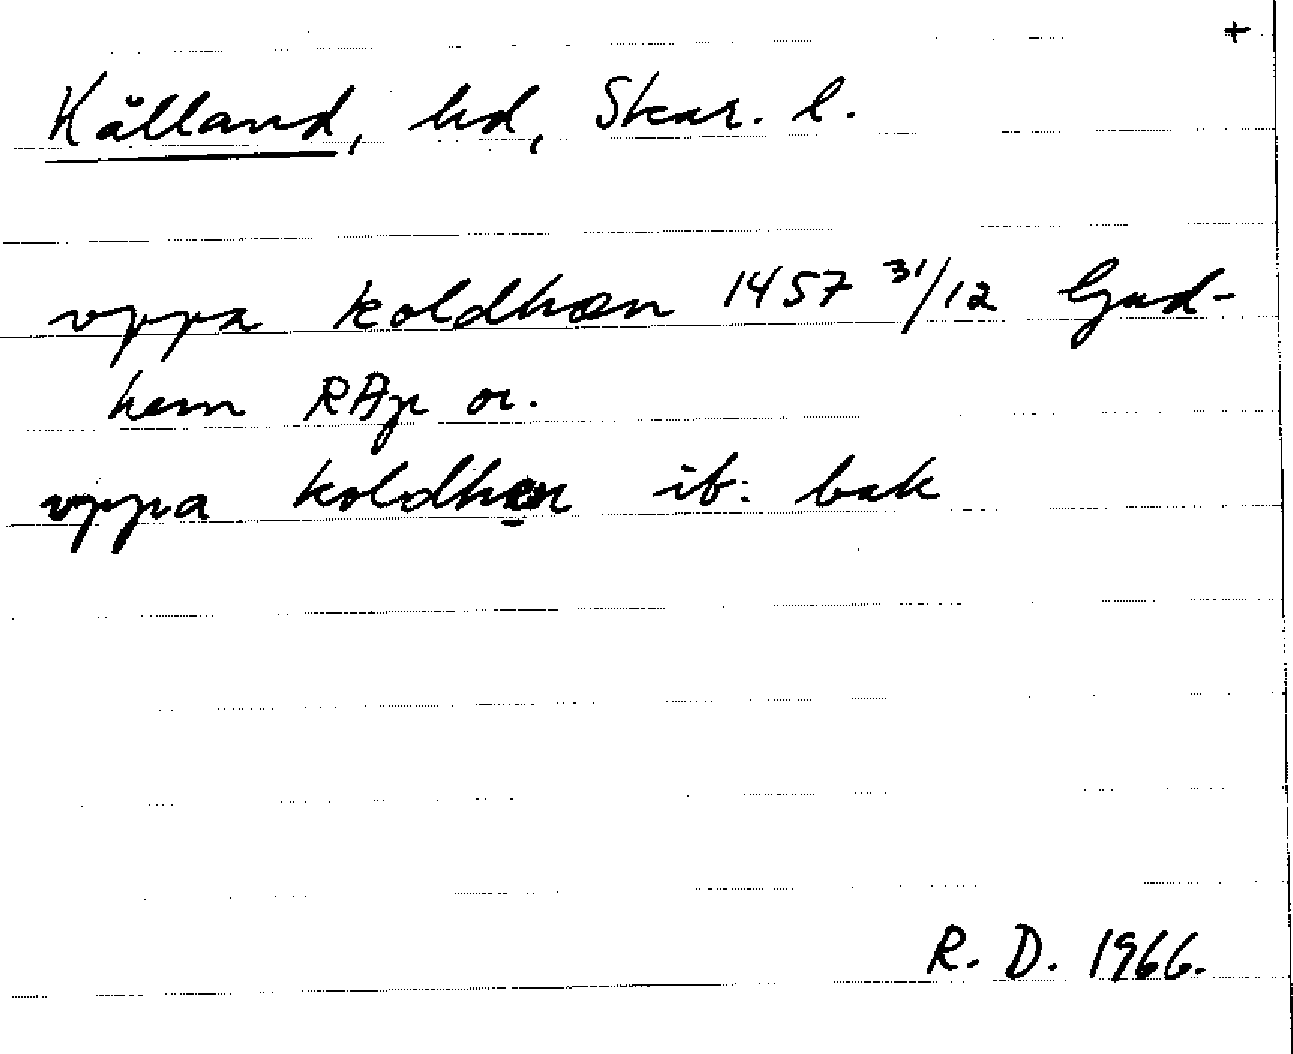 +
Kålland, hd, Skar. l.
vppa koldhæn 1457 31/12 Gud-
hem RAp or.
vppa koldhæn ib. bak
R. D. 1966.